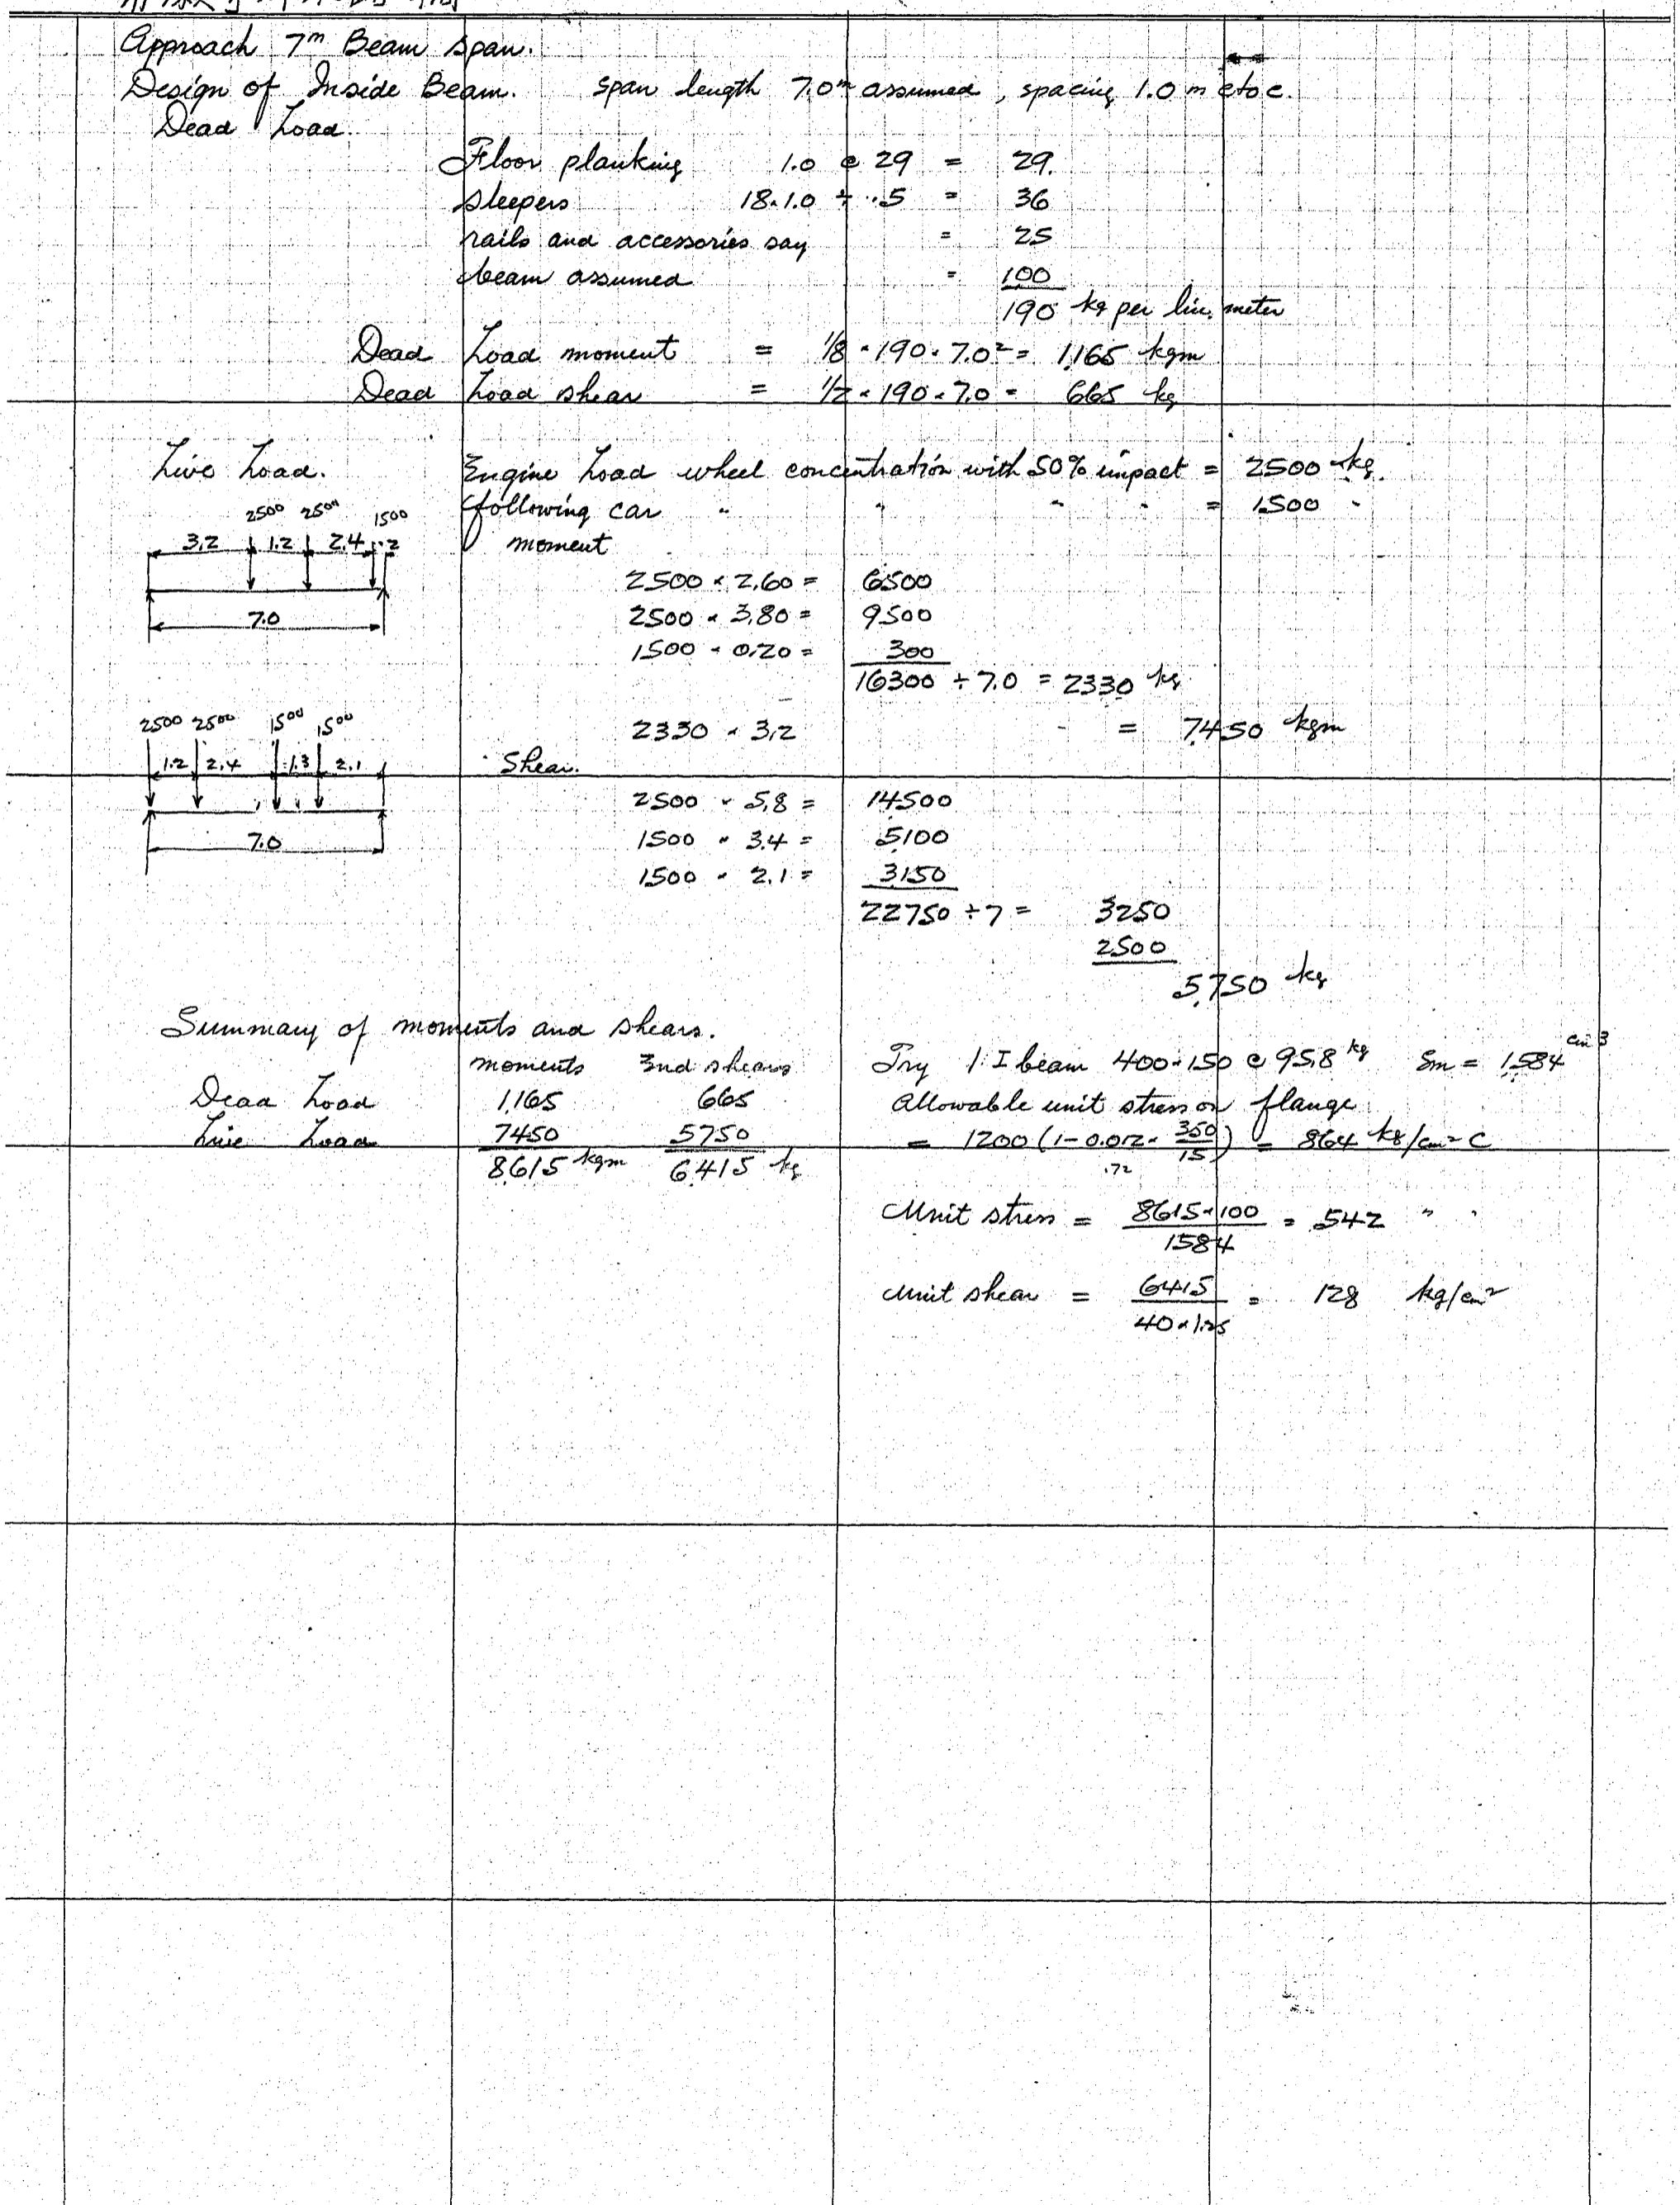 Approach 7m Beam span.
Design of Inside Beam. span length 7.0m assumed, spacing 1.0 m ctoc.
Dead Load.
Floor planking 1.0 @ 29 = 29.
sleepers 18×1.0 ÷ .5 = 36
rails and accessories say = 25
beam assumed = 100
190 kg per lin. meter
Dead Load moment = 1/8 × 190 × 7.0² = 1,165 kgm
Dead Load shear = 1/2 × 190 × 7.0 = 665 kg
Live Load. Engine Load wheel concentration with 50% impact = 2500 kg.
following car " " " " = 1500 "
2500 2500 1500
3.2 1.2 2.4 .2
7.0
moment
2500 × 2.60 = 6500
2500 × 3.80 = 9500
1500 × 0.20 = 300
16300 ÷ 7.0 = 2330 kg
2330 × 3.2 = 7450 kgm
2500 2500 1500 1500
1.2 2.4 1.3 2.1
7.0
Shear.
2500 × 5.8 = 14500
1500 × 3.4 = 5100
1500 × 2.1 = 3150
22750 ÷ 7 = 3250
2500
5,750 kg
Summary of moments and shears.
moments End shears
Dead Load 1,165 665
Live Load 7450 5750
8,615 kgm 6,415 kg
Try 1-I beam 400×150 @ 95.8 kg Sm = 1,584 cm3
Allowable unit stress on flange
= 1200 (1-0.012× 350/15) = 864 kg/cm² C
.72
Unit stress = 8615×100/1584 = 542 " "
Unit shear = 6415/40×1.25 = 128 kg/cm²